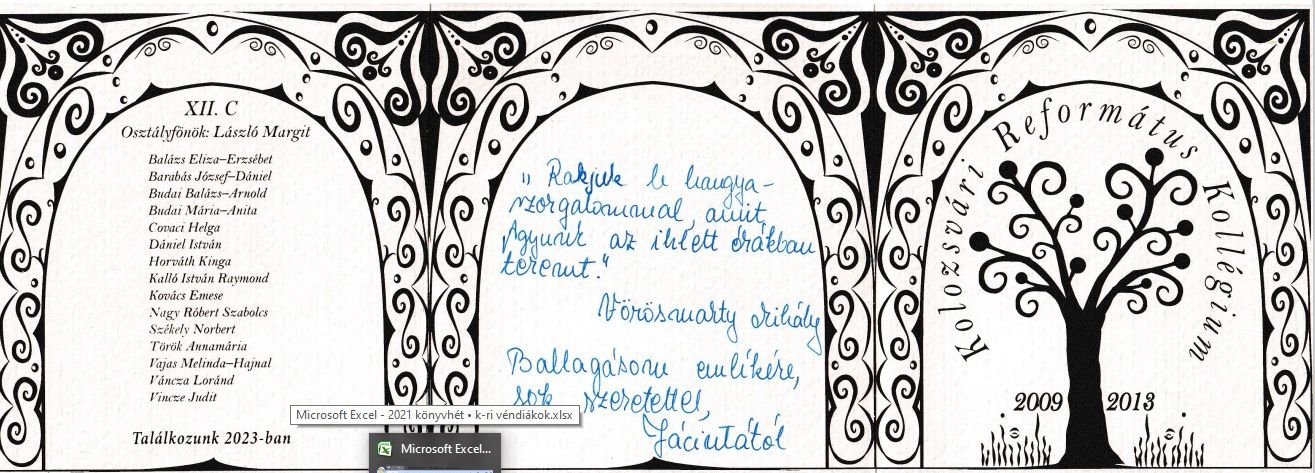 XII. C
Osztályfőnök: László Margit
Balázs Eliza–Erzsébet
Barabás József–Dániel
Budai Balázs–Arnold
Budai Mária–Anita
Covaci Helga
Dániel István
Horváth Kinga
Kalló István Raymond
Kovács Emese
Nagy Róbert Szabolcs
Székely Norbert
Török Annamária
Vajas Melinda–Hajnal
Váncza Loránd
Vincze Judit
Találkozunk 2023-ban
„Rakjuk le hangya-
szorgalommal, amit
Agyunk az ihlett órákban
teremt."
Vörösmarty Mihály
Ballagásom emlékére,
sok szeretettel,
Jácintától
Kolozsvári Református Kollégium
2009 2013
Microsoft Excel - 2021 könyvhét • k-ri véndiákok.xlsx
Microsoft Excel...